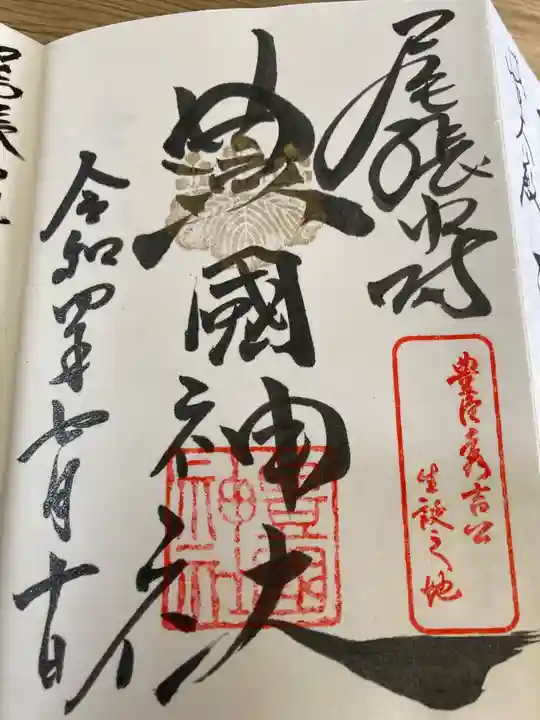 尾張
豊臣秀吉公
生誕之地
豊國神社
豊國
神社
令和四年七月十日